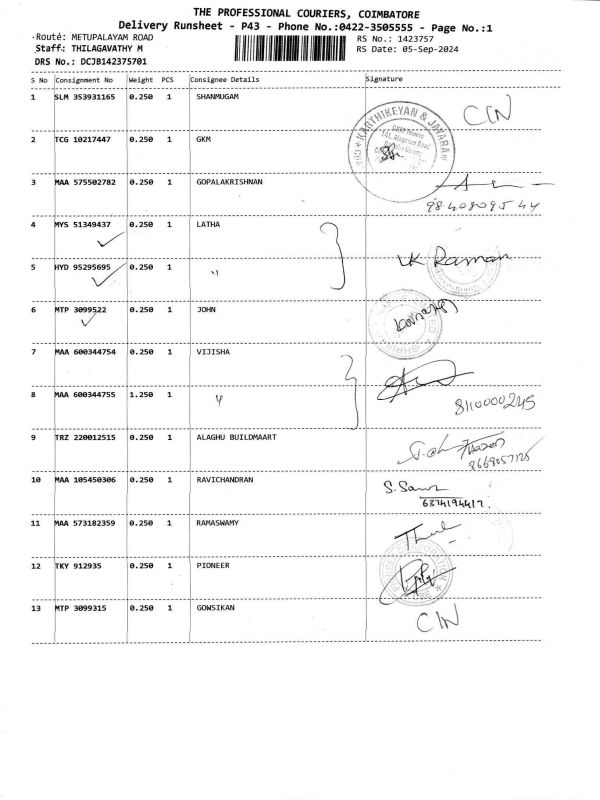 THE PROFESSIONAL COURIERS, COIMBATORE
Delivery Runsheet - P43 - Phone No.:0422-3505555 - Page No.:1
Route: METUPALAYAM ROAD
RS No.: 1423757
Staff: THILAGAVATHY M
RS Date: 05-Sep-2024
DRS No.: DCJB142375701
S No Consignment No Weight PCS Consignee Details Signature
1 SLM 353931165 0.250 1 SHANMUGAM C/N
KARTHIKEYAN & JAYARAM
2 TCG 10217447 0.250 1 GKM
3 MAA 575502782 0.250 1 GOPALAKRISHNAN
9840809544
4 MYS 51349437 0.250 1 LATHA
5 HYD 95295695 0.250 1 " VK Raman
6 MTP 3099522 0.250 1 JOHN
7 MAA 600344754 0.250 1 VIJISHA
8 MAA 600344755 1.250 1 "
8110000245
9 TRZ 220012515 0.250 1 ALAGHU BUILDMAART
10 MAA 105450306 0.250 1 RAVICHANDRAN
6374194417
11 MAA 573182359 0.250 1 RAMASWAMY
12 TKY 912935 0.250 1 PIONEER
13 MTP 3099315 0.250 1 GOWSIKAN C/N